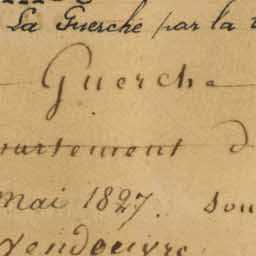 La Guerche par la
Guerche
partement d
mai 1827. sou
Vendoeuvre